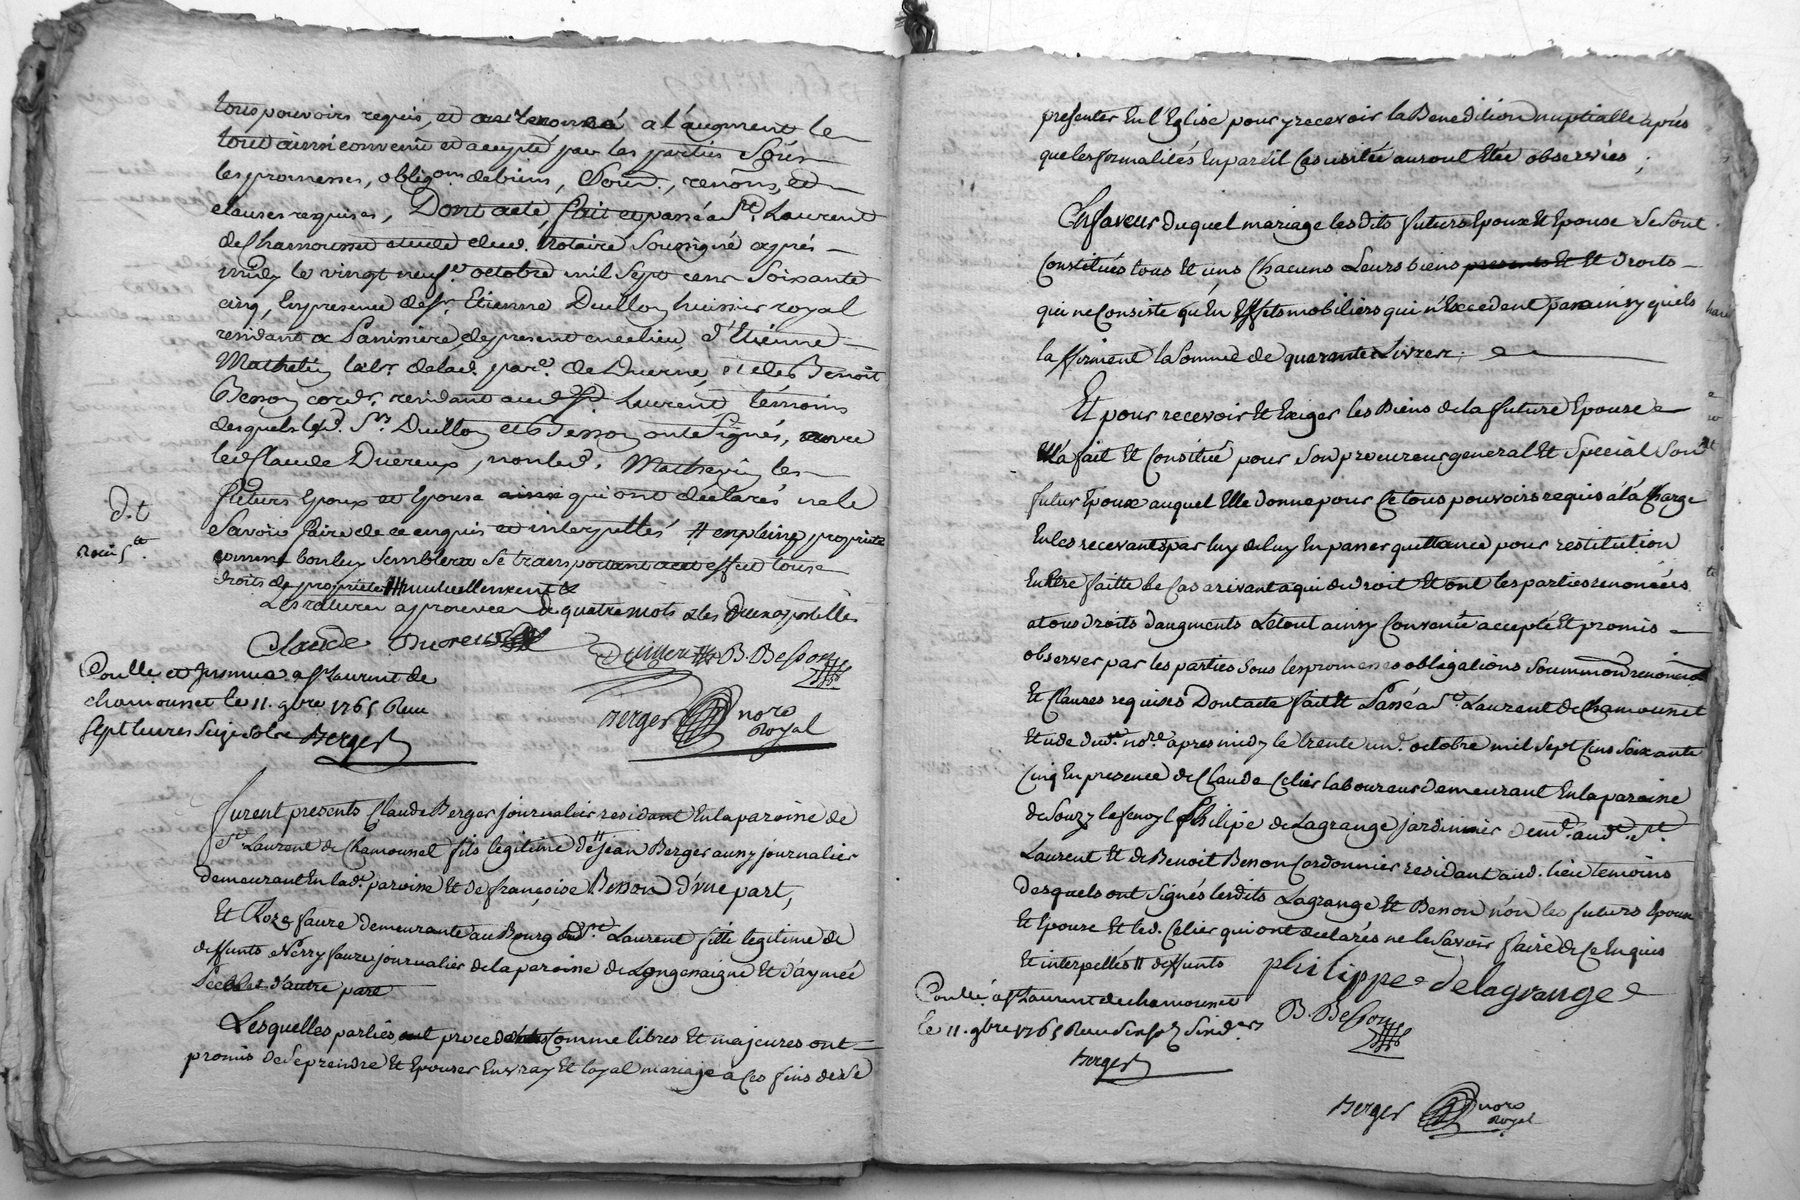 tous pouvoirs requis, et ont renoncé a l'augment le
tout ainsi convenu et accepté par les parties Sous
les promesses, obligons. de biens, Soum., renons, et
clauses requises, Dont acte, fait et passé a St. Laurent
de Chamousset etude dud. Notaire Soussigné après
midy le vingt neuf octobre mil Sept cens Soixante
cinq, En presence de Sr. Etienne Duillon huissier royal
residant a de present en ce lieu, d'Etienne
Mathevin labr. de lad. parse. de Duerne, et de Benoit
Besson cordr. residant aud. St. Laurent témoins
desquels led. Sr. Duillon et Besson ont Signés, avec
led. Claude Ducreux, non led. Mathevin les
futurs Epoux et Epouse qui ont déclarés ne le
Savoir faire de ce enquis et interpellés # en pleine propriété
comme bon luy Semblera se transportant a cet effet tous
droits de propriété ## mutuellement
Les ratures approuvées de quatre mots & les deux apostilles
d. t
reçu 5 tt
Claude Ducreux
B. Besson
Conllé et Insinué a St Laurent de
chamousset le 11. 9bre 1765 Reçu
Sept livres Seize Sols Berger
Berger nore
Royal
furent presents Claude Berger Journalier residant En la paroisse de
St. Laurent de Chamousset fils legitime de Jean Berger aussy journalier
demeurant En lad. paroisse Et de françoise Besson d'une part,
Et Roze faure demeurante au Bourg dud. St. Laurent fille legitime de
deffunts Nerry faure journalier de la paroisse de Longessaigne Et d'aymée
d'autre part
Lesquelles parties procedantes Comme libres Et majeures ont
promis de Se prendre Et Epouser En vray Et loyal mariage a Ces fins de Se
presenter En l'Eglise pour y recevoir la Benediction nuptialle après
que les formalités En pareil Cas usitée auront Etée observées ;
En faveur duquel mariage lesdits futurs Epoux Et Epouse Se Sont
Constitués tous Et uns Chacuns Leurs biens presents Et Et droits
qui ne Consiste qu'En Effets mobiliers qui n'Excedent pas ainsy quils
laffirment la Somme de quarante Livres.
Et pour recevoir Et Exiger les Biens de la future Epouse
Ella fait Et Constitué pour Son procureur general Et Special Son
futur Epoux auquel Elle donne pour Ce tous pouvoirs requis a la Charge
En les recevants par luy de luy En passer quittance pour restitution
En Etre faitte le Cas arivant a qui de droit Et ont les parties renoncées
a tous droits d'augments Le tout ainsy Convenu accepté Et promis
observer par les parties Sous les promesses obligations Soummon renonciaon
Et Clauses requises Dont acte fait Et Passé a St. Laurent de Chamousset
Etude dud. nore. apres midy le trente un. octobre mil Sept Cens Soixante
Cinq En presence de Claude Celier laboureur demeurant En la paroisse
de Souzy Philipe de Lagrange jardinier demt. aud. St.
Laurent Et de Benoit Besson Cordonnier residant aud. lieu temoins
desquels ont Signés lesdits Lagrange Et Besson non les futurs Epoux
Et Epouse Et led. Celier qui ont declarés ne le Savoir faire de Ce Enquis
Et interpellés # deffunts
philippe delagrange
B. Besson
Conllé a St Laurent de chamousset
le 11. 9bre 1765 Reçu
Berger
Berger nore
Royal